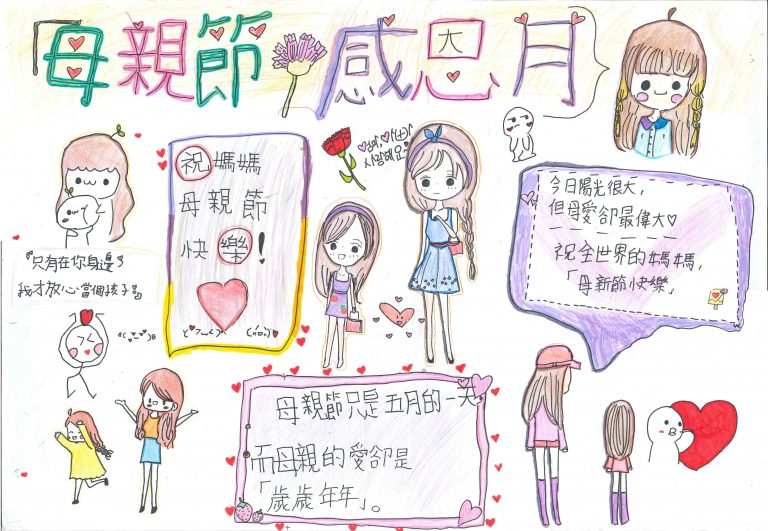 「母親節感恩月
祝媽媽
母親節
快樂!
사랑해요
今日陽光很大,
但母愛卻最偉大♡
祝全世界的媽媽,
「母新節快樂」
『只有在你身邊』
我才放心當個孩子
母親節只是五月的一天,
而母親的愛卻是
「歲歲年年」。